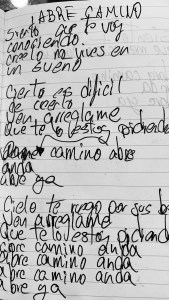 ABRE CAMINO
Siento que te voy
conociendo.
creelo no vives en
un sueño
Cierto es dificil
de cierto
Ven arreglame
que te lo estoy pidiendo
camino abre
anda
abre ya
Cielo te ruego por
Ven arreglame
que te lo estoy pidiendo
abre camino anda
abre camino anda
abre camino anda
abre ya